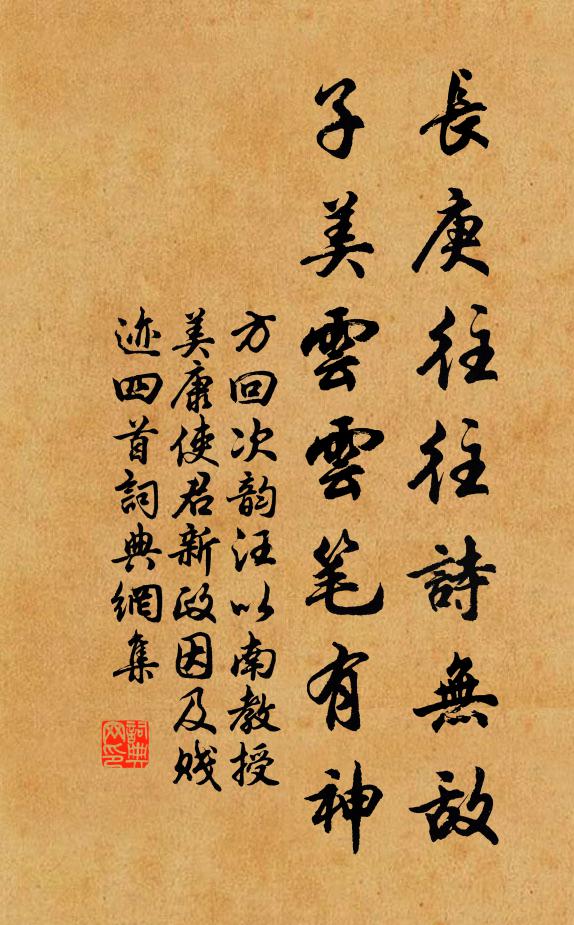 長庚往往詩無敌
子美雲雲笔有神
方回次韵汪以南教授
美康使君新政因及贱
迹四首詞典網集
詞典
网印